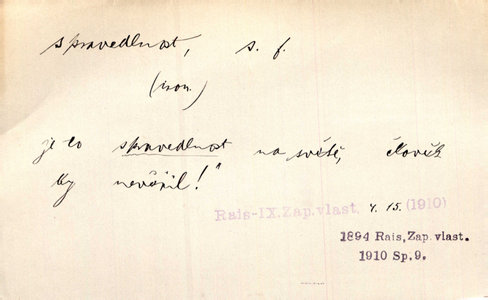 spravedlnost, s. f.
(iron.)
je to spravedlnost na světě, člověk
by nevěřil!"
Rais-IX.Zap.vlast. 4. 15. (1910)
1894 Rais, Zap. vlast.
1910 Sp. 9.